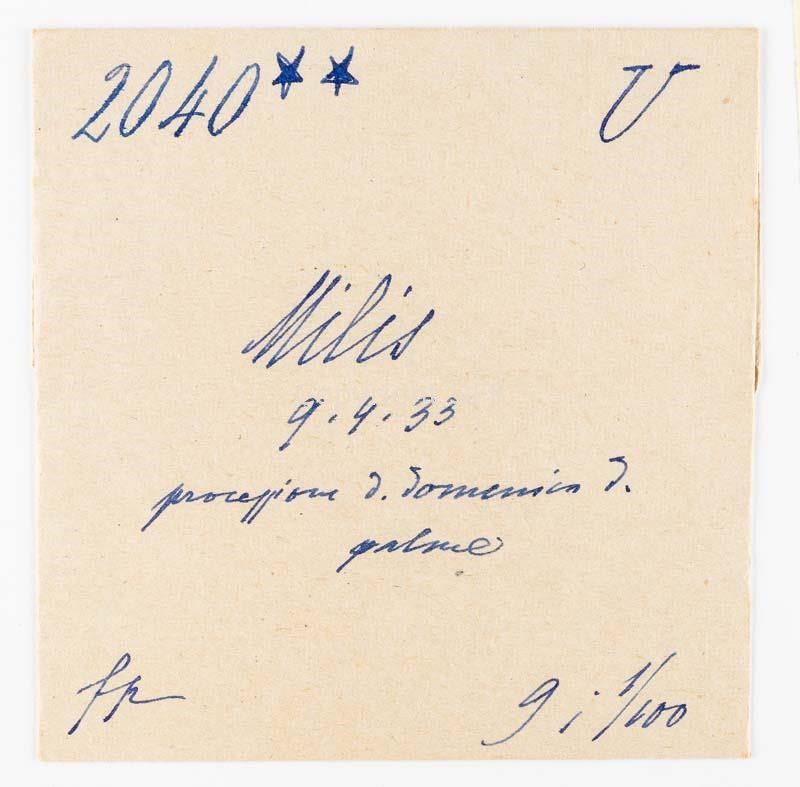 2040★★ U
Milis
9.4.33
processione d. domenica d.
palme
fp 9; 1/100